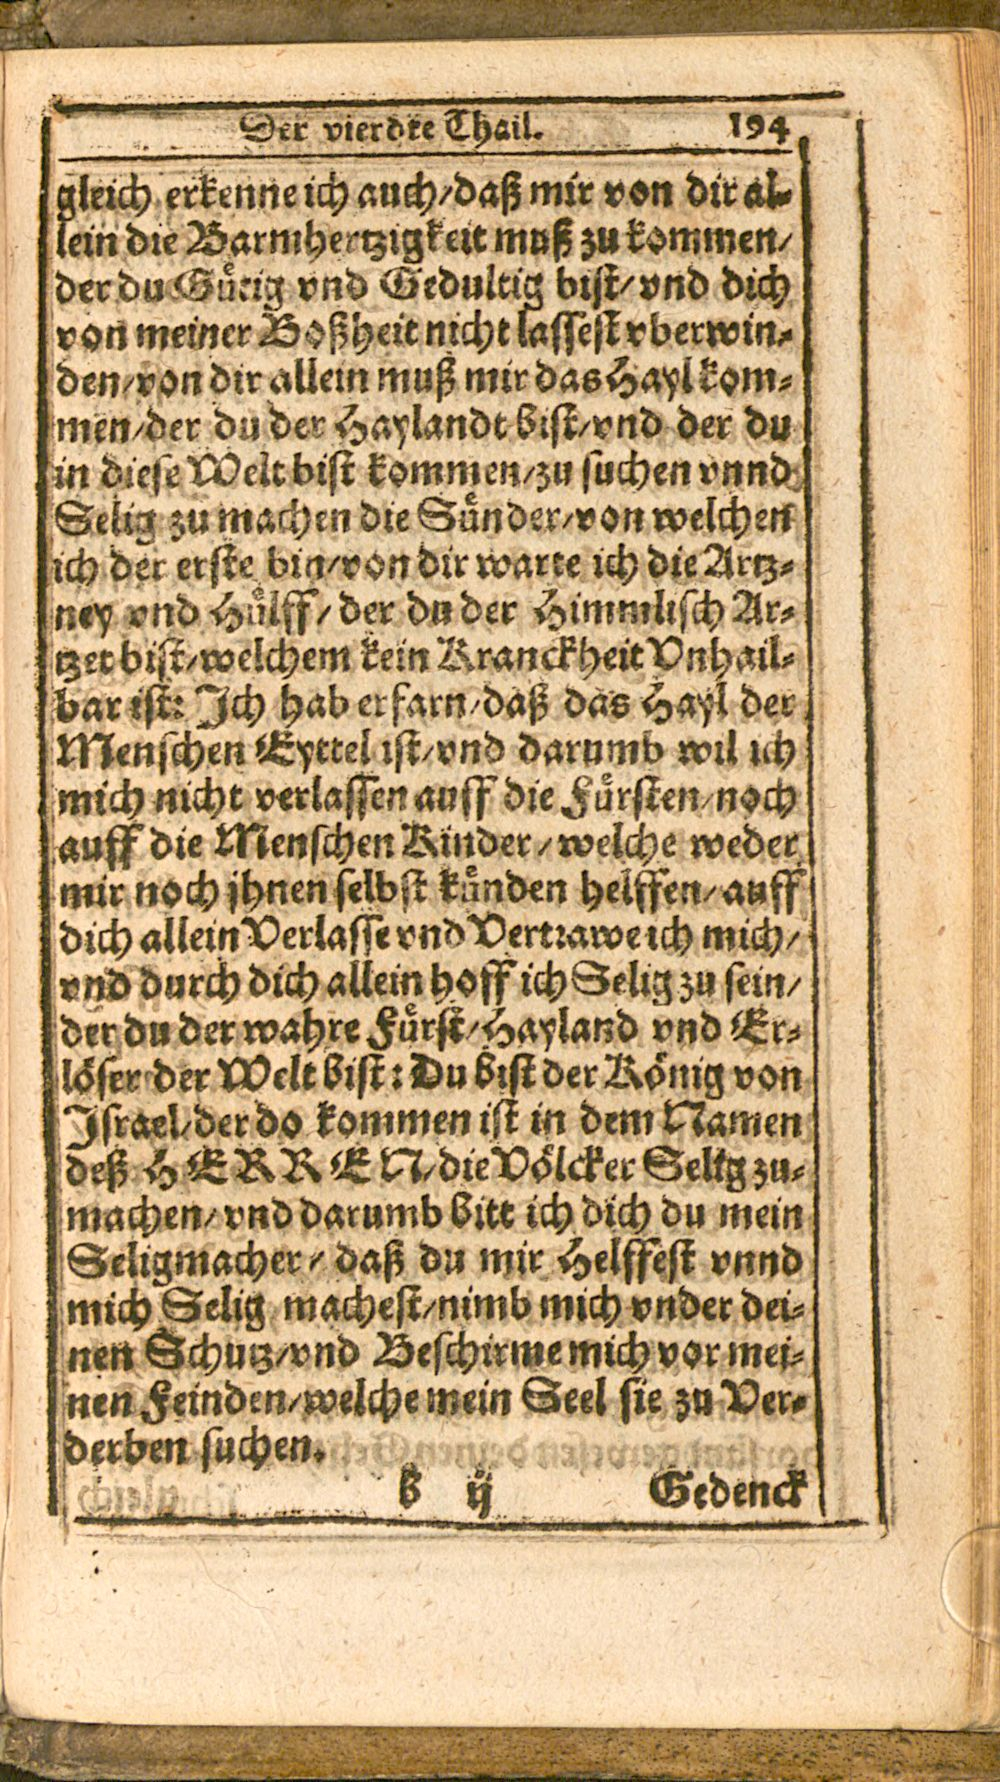 Der vierdte Thail. 194
gleich erkenne ich auch/daß mir von dir al-
lein die Barmhertzigkeit muß zu kommen/
der du Gütig vnd Gedultig bist/vnd dich
von meiner Boßheit nicht lassest vberwin-
den/von dir allein muß mir das Hayl kom-
men/der du der Haylandt bist/vnd der du
in diese Welt bist kommen/zu suchen vnnd
Selig zu machen die Sünder/von welchen
ich der erste bin/von dir warte ich die Artz-
ney vnd Hülff/der du der Himmlisch Ar-
tzet bist/welchem kein Kranckheit Vnhail-
bar ist: Ich hab erfarn/daß das Hayl der
Menschen Eyttel ist/vnd darumb wil ich
mich nicht verlassen auff die Fürsten/noch
auff die Menschen Kinder/welche weder
mir noch jhnen selbst künden helffen/auff
dich allein Verlasse vnd Vertrawe ich mich/
vnd durch dich allein hoff ich Selig zu sein/
der du der wahre Fürst/Hayland vnd Er-
löser der Welt bist: Du bist der König von
Israel/der do kommen ist in dem Namen
deß HERREN/die Völcker Selig zu-
machen/vnd darumb bitt ich dich du mein
Seligmacher/daß du mir Helffest vnnd
mich Selig machest/nimb mich vnder dei-
nen Schutz/vnd Beschirme mich vor mei-
nen Feinden/welche mein Seel sie zu Ver-
derben suchen.
b ij Gedenck